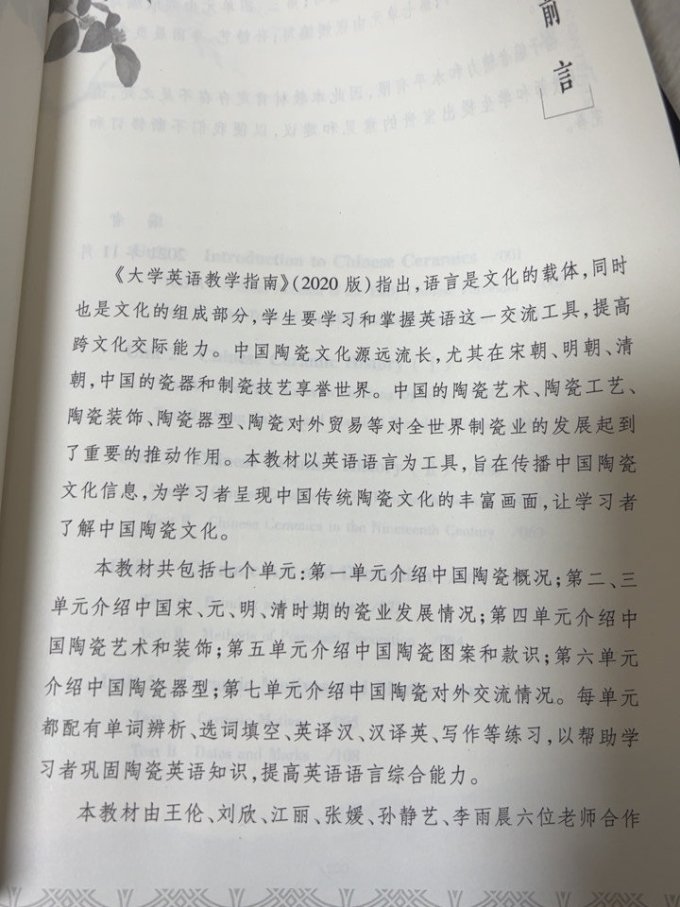 前言
《大学英语教学指南》(2020 版)指出,语言是文化的载体,同时
也是文化的组成部分,学生要学习和掌握英语这一交流工具,提高
跨文化交际能力。中国陶瓷文化源远流长,尤其在宋朝、明朝、清
朝,中国的瓷器和制瓷技艺享誉世界。中国的陶瓷艺术、陶瓷工艺、
陶瓷装饰、陶瓷器型、陶瓷对外贸易等对全世界制瓷业的发展起到
了重要的推动作用。本教材以英语语言为工具,旨在传播中国陶瓷
文化信息,为学习者呈现中国传统陶瓷文化的丰富画面,让学习者
了解中国陶瓷文化。
本教材共包括七个单元:第一单元介绍中国陶瓷概况;第二、三
单元介绍中国宋、元、明、清时期的瓷业发展情况;第四单元介绍中
国陶瓷艺术和装饰;第五单元介绍中国陶瓷图案和款识;第六单元
介绍中国陶瓷器型;第七单元介绍中国陶瓷对外交流情况。每单元
都配有单词辨析、选词填空、英译汉、汉译英、写作等练习,以帮助学
习者巩固陶瓷英语知识,提高英语语言综合能力。
本教材由王伦、刘欣、江丽、张媛、孙静艺、李雨晨六位老师合作